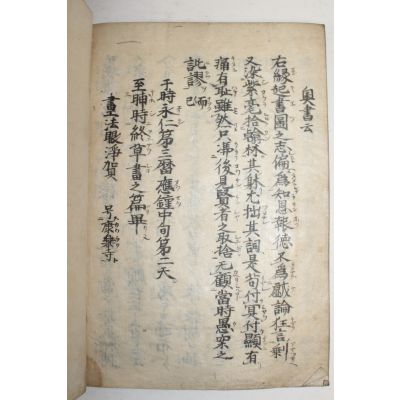 奥書云
右縁起書圖之志偏為知恩報徳不為戯論狂言剰
又染紫毫拾翰林其躰尤拙其詞是苟付冥付顯有
痛有耻雖然只馮後見賢者之取捨无顧當時愚案之
訛謬而已
于時永仁第三暦應鐘中旬第二天
至晡時終草書之篇畢
畫工法眼淨賀 号康樂寺